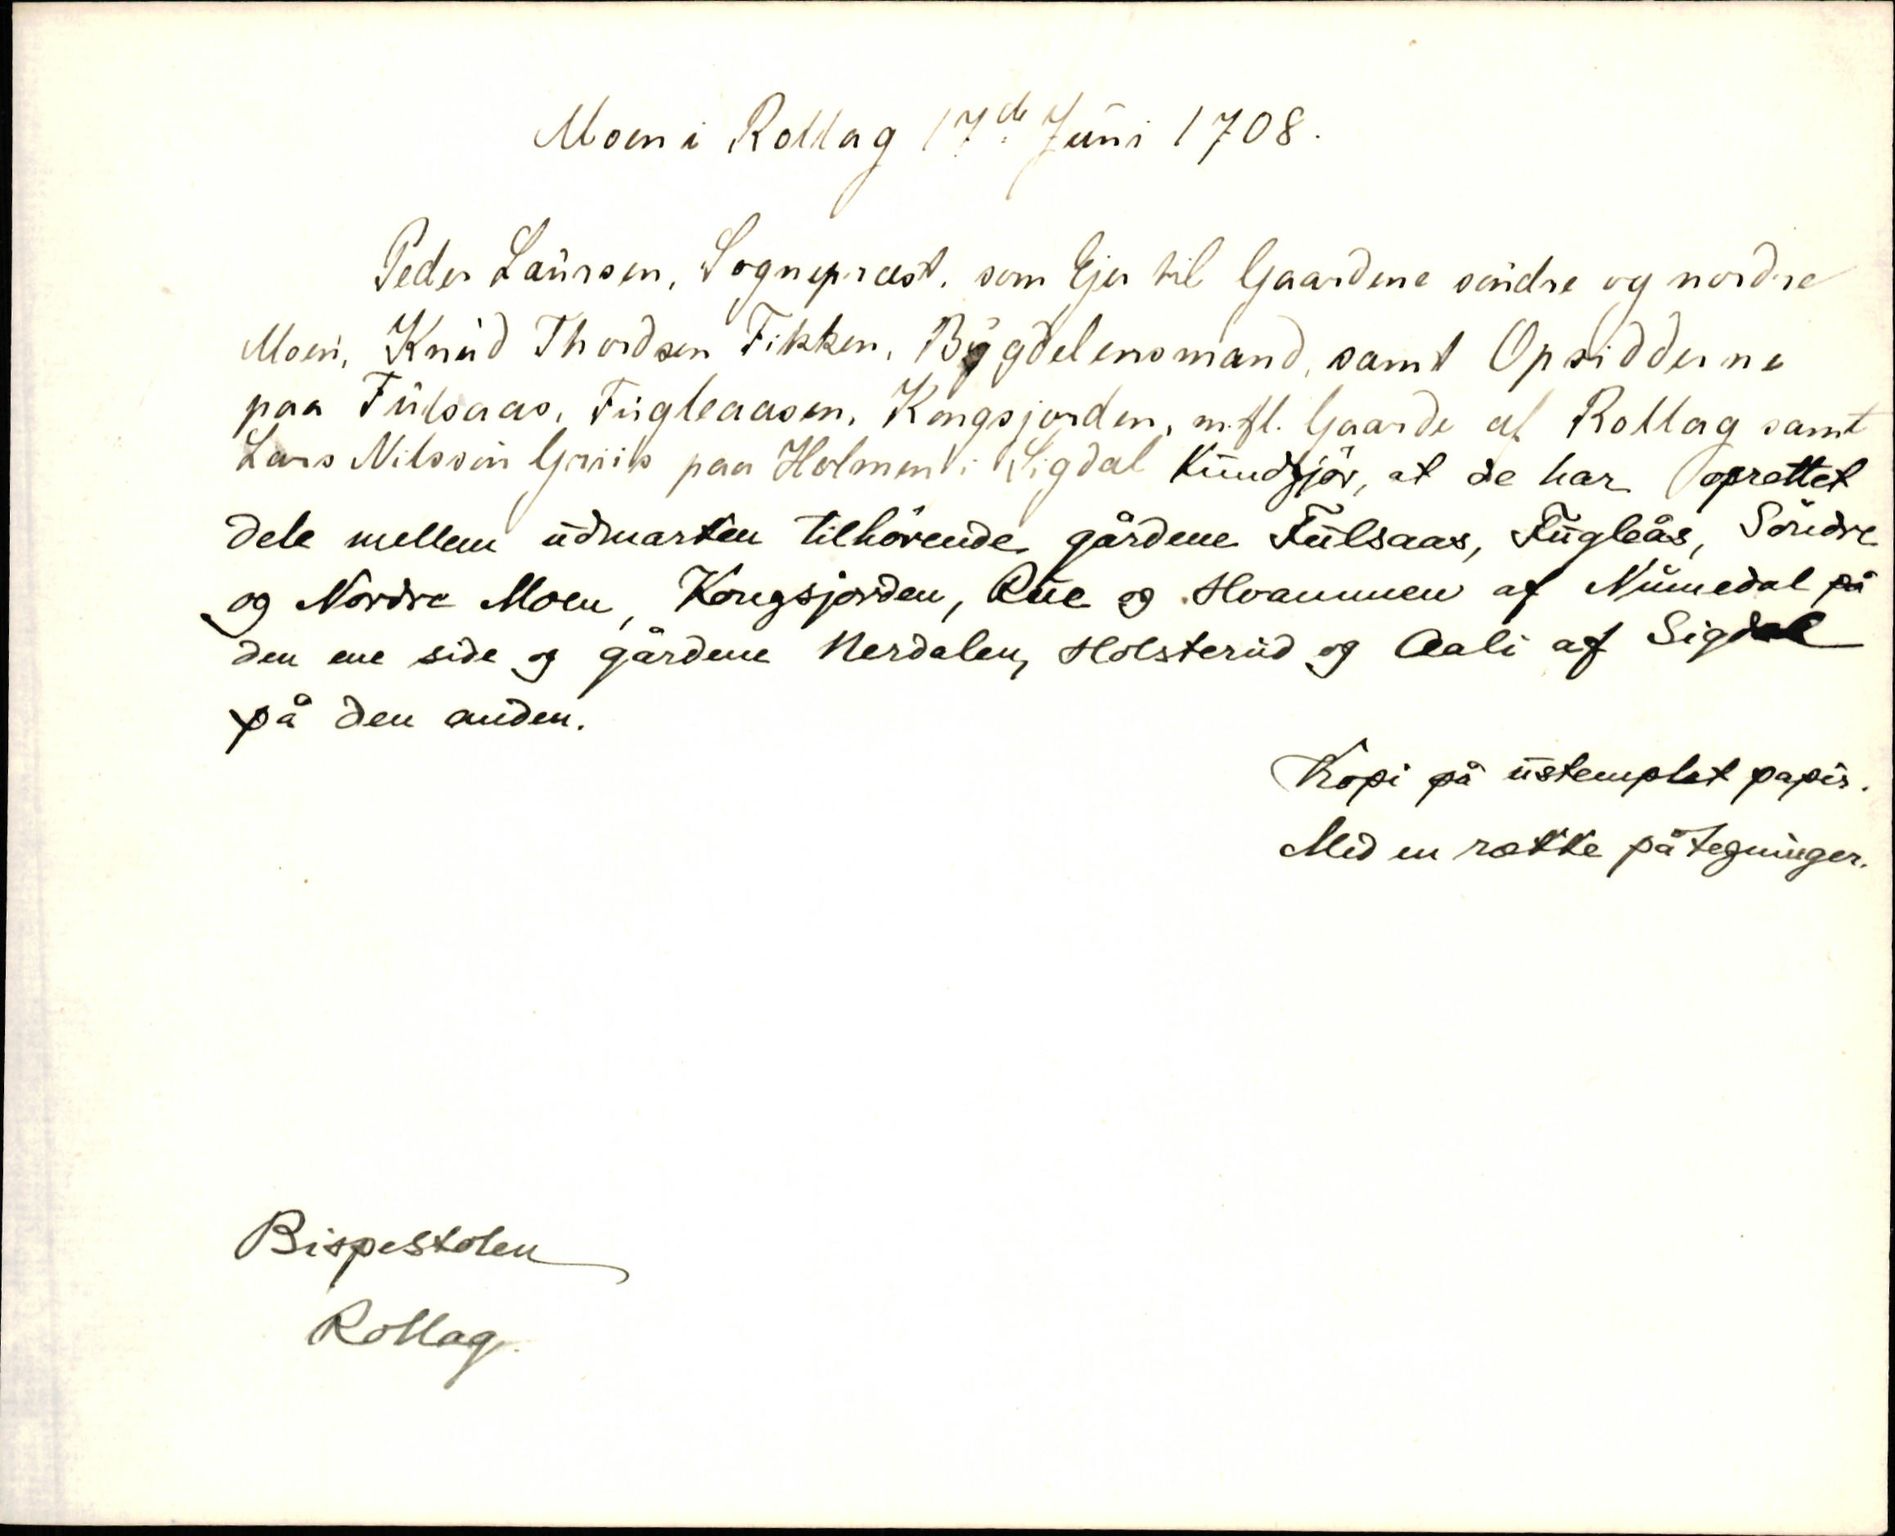 Moen i Rollag 17de Juni 1708.
Peder Laursen, Sognepræst, som Ejer til Gaardene söndre og nordre
Moen, Knud Thordsen Fikken, Bÿgdelensmand, samt Opsidderne
paa Fulsaas, Fugleaasen, Kongsjorden, m.fl. Gaarde af Rollag samt
Lars Nilssön Griis paa Holmen i Sigdal kundgjör, at de har oprettet
dele mellem udmarken tilhörende gårdene Fulsaas, Fugleås, Söndre
og Nordre Moen, Kongsjorden, Rue og Hvammen af Numedal på
den ene side og gårdene Nerdalen, Holsterud og Aali af Sigdal
på den anden.
Kopi på ustemplet papir.
Med en række påtegninger.
Bispestolen
Rollag.